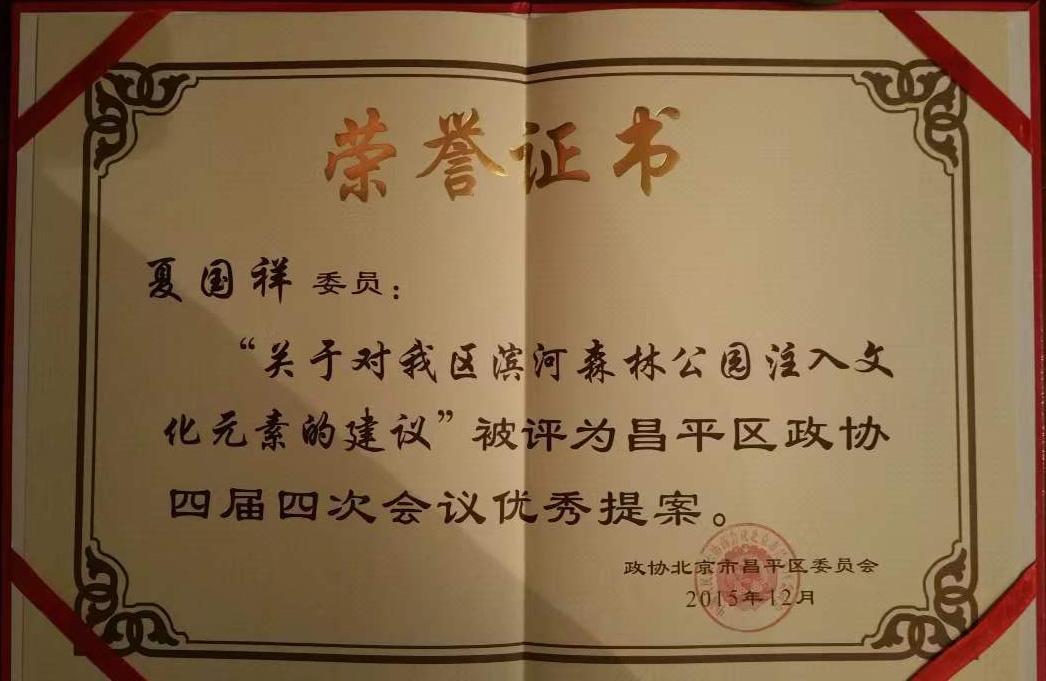 荣誉证书
夏国祥委员：
“关于对我区滨河森林公园注入文
化元素的建议”被评为昌平区政协
四届四次会议优秀提案。
政协北京市昌平区委员会
2015年12月